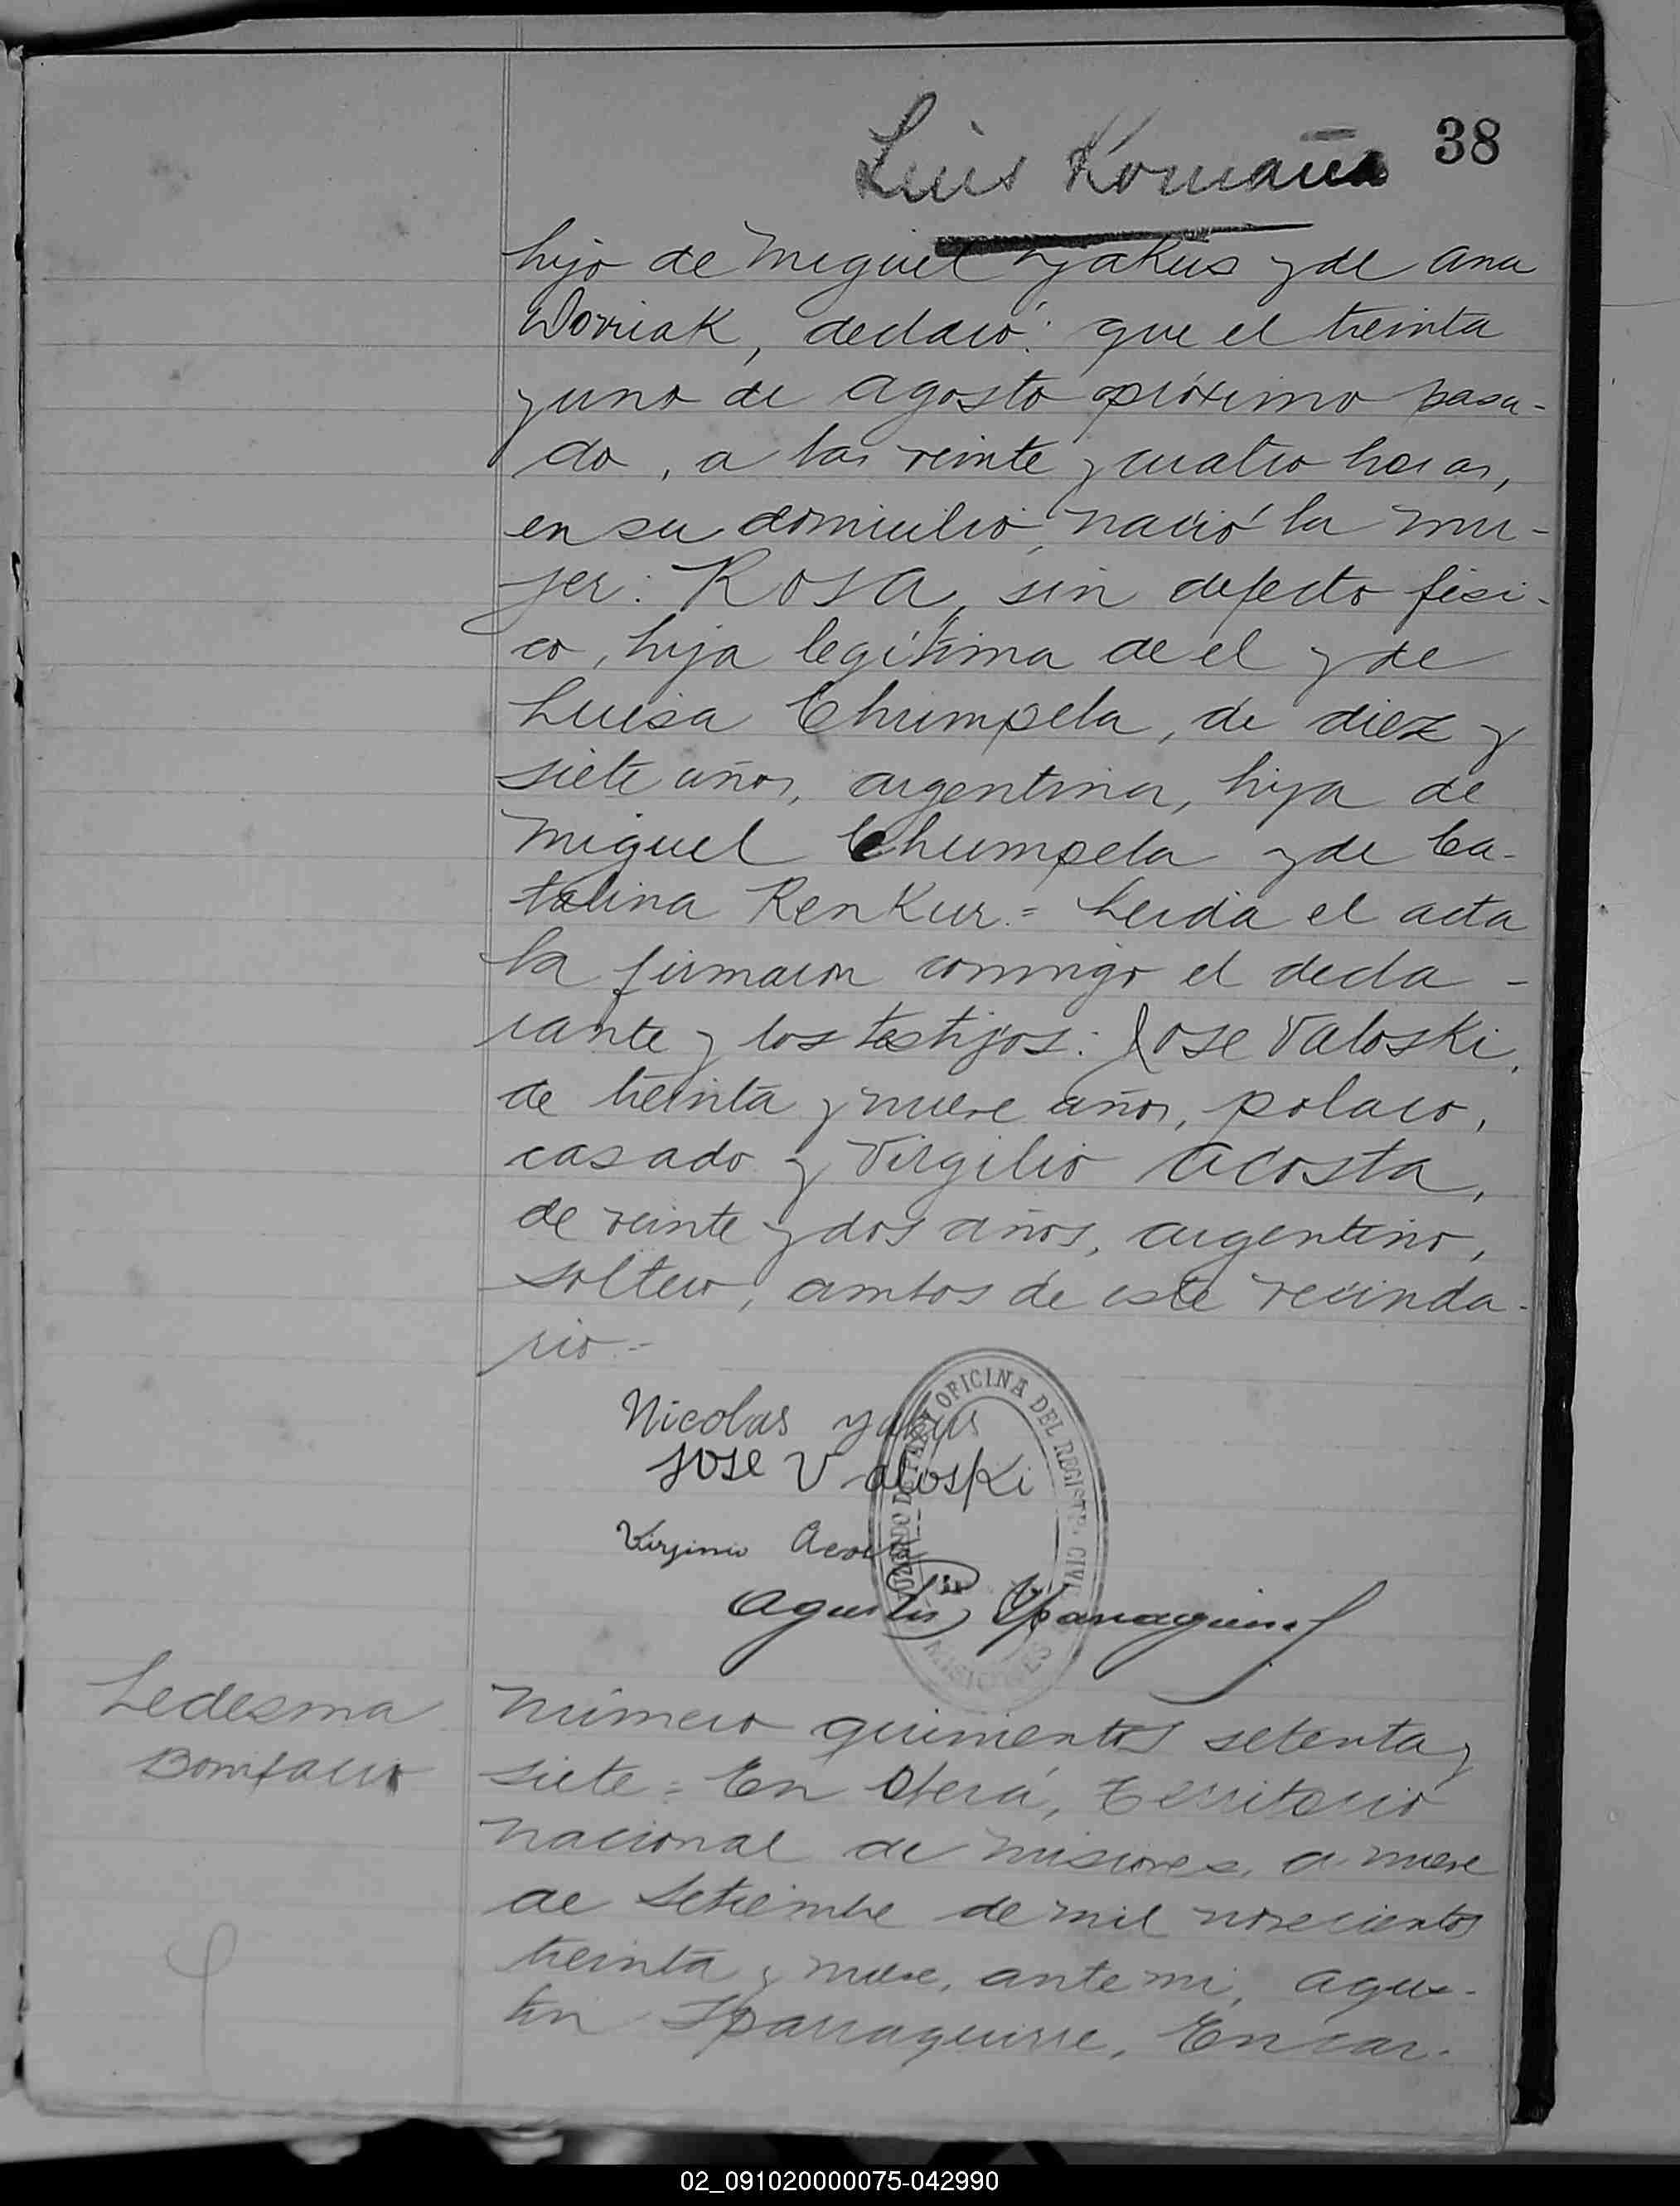 38
Luis Komaña
hijo de Miguel Yakus y de Ana
Dorriak, declaró: que el treinta
y uno de Agosto próximo pasa-
do, a las veinte y cuatro horas,
en su domicilio, nació la mu-
jer: ROSA, sin defecto físi-
co, hija legítima de el y de
Luisa Chumpela, de diez y
siete años, argentina, hija de
Miguel Chumpela y de Ca-
talina RenKur.= Leida el acta
la firmaron conmigo el decla-
rante y los testigos: Jose Valoski,
de treinta y nueve años, polaco,
casado y Virgilio Acosta,
de veinte y dos años, argentino,
soltero, ambos de este vecinda-
rio.-
Nicolas Yakus
Jose Valoski
Virginio Acosta
Agustin Yparraguirre
OFICINA DEL REGISTRO CIVIL
MISIONES
Ledesma
Bonifacio
Número quinientos setenta y
siete = En Oberá, Territorio
Nacional de Misiones, a nueve
de Setiembre de mil novecientos
treinta y nueve, ante mi, Agus-
tin Yparraguirre, Encar-
02_091020000075-042990